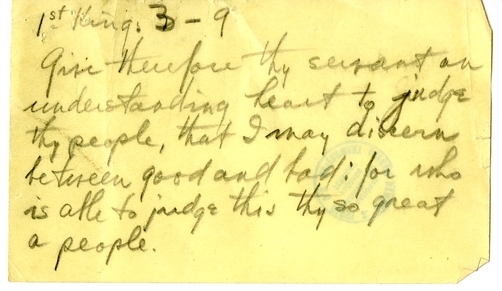 1st King: 3-9
Give therefore thy servant an
understanding heart to judge
thy people, that I may discern
between good and bad: for who
is able to judge this thy so great
a people.